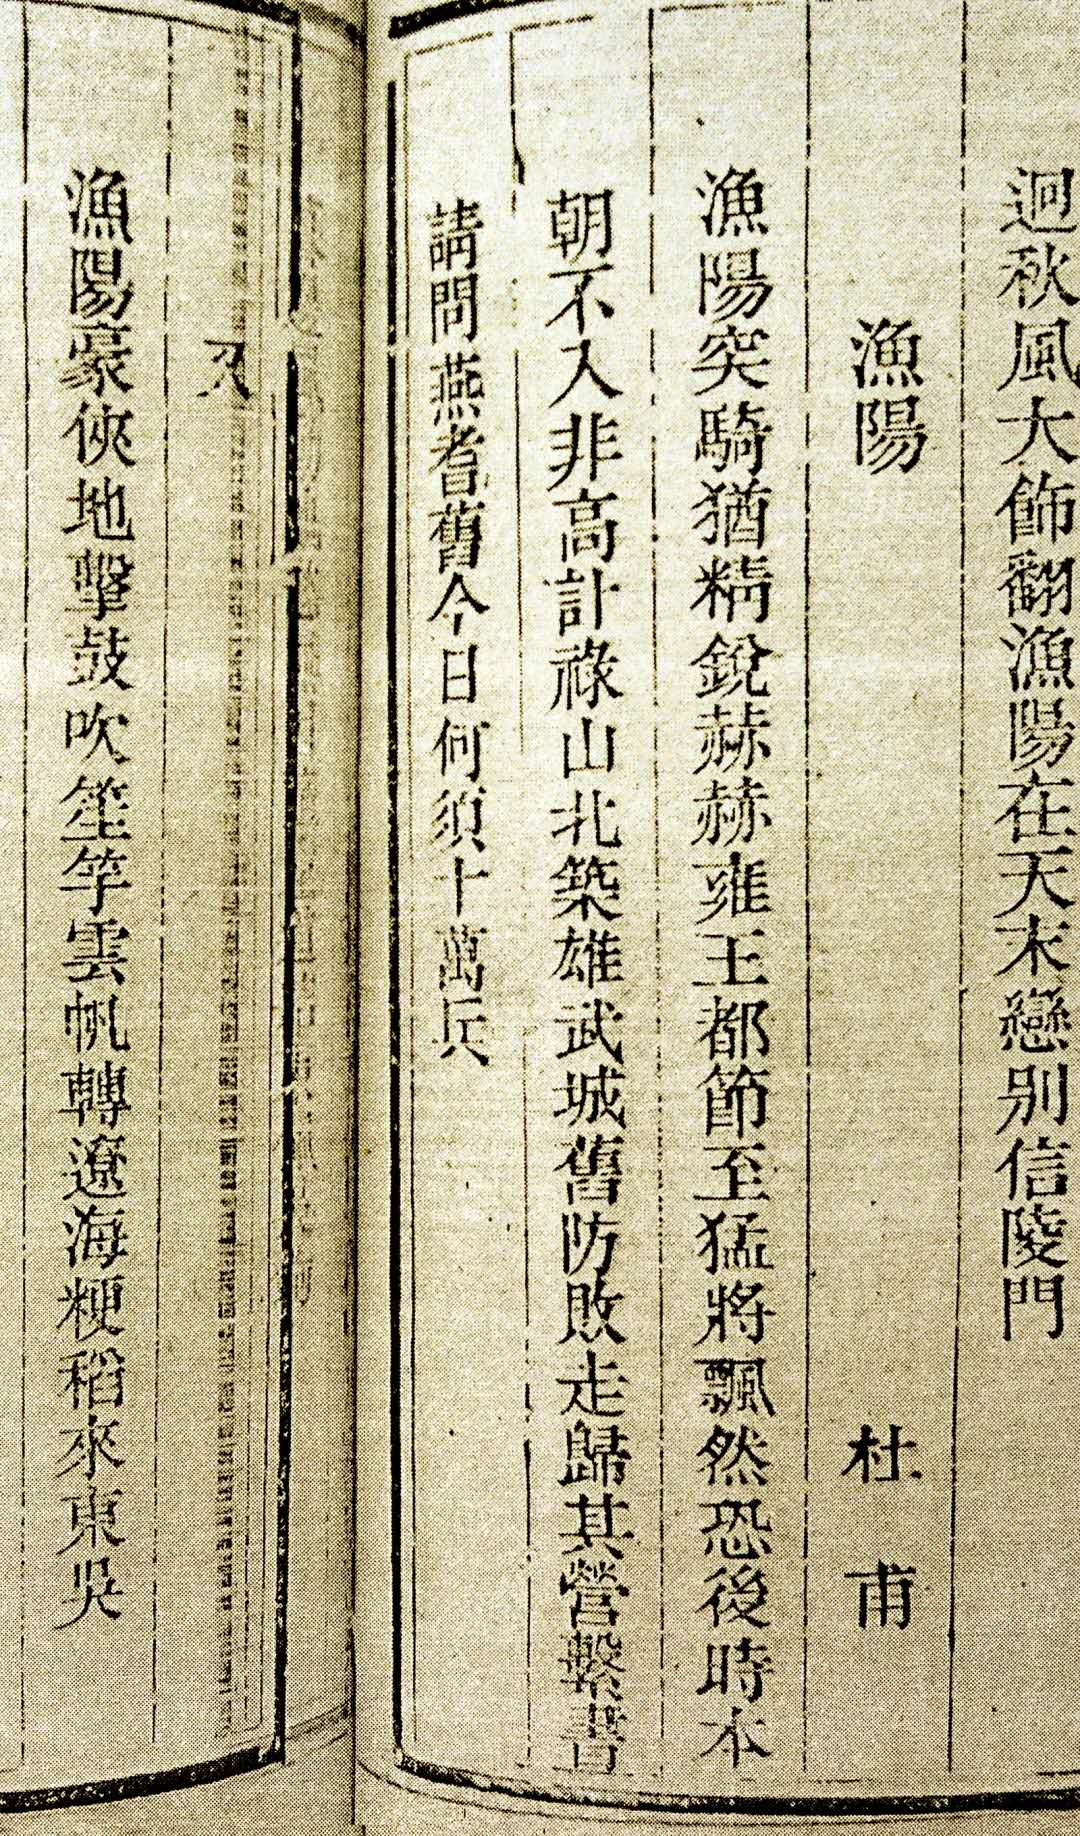 迴秋風大飾翻漁陽在天末戀別信陵門
漁陽 杜甫
漁陽突騎猶精銳赫赫雍王都節至猛將飄然恐後時本
朝不入非高計祿山北築雄武城舊防敗走歸其營繫書
請問燕耆舊今日何須十萬兵
又
漁陽豪俠地擊鼓吹笙竽雲帆轉遼海粳稻來東吳